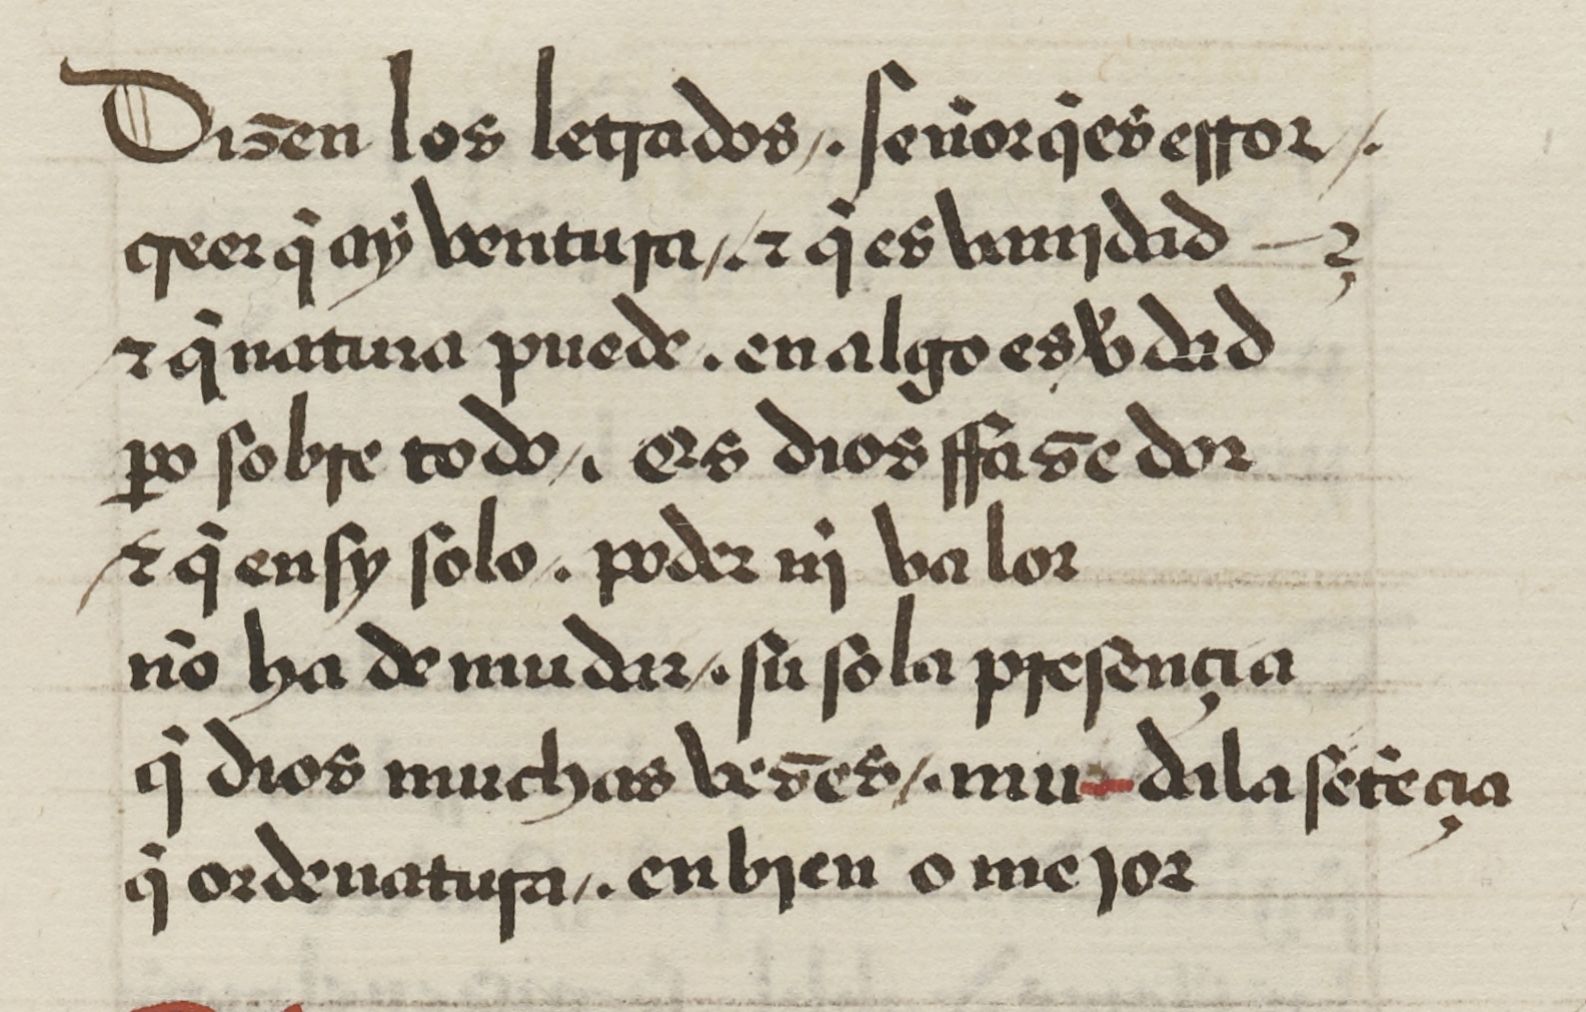 Dizen los letrados /. señor q̃ es error /.
creer q̃ ay ventura /. ⁊ q̃ es vanjdad
⁊ q̃ natura puede . en algo es v̾dad
ꝑo sobre todo /. es dios ffasedor
⁊ q̃ en sy solo . poder nj̃ valor
nõ ha de mudar /. su sola presençia
q̃ dios muchas veses /. muda la setẽçia
q̃ ordenatura /. en bien o mejor